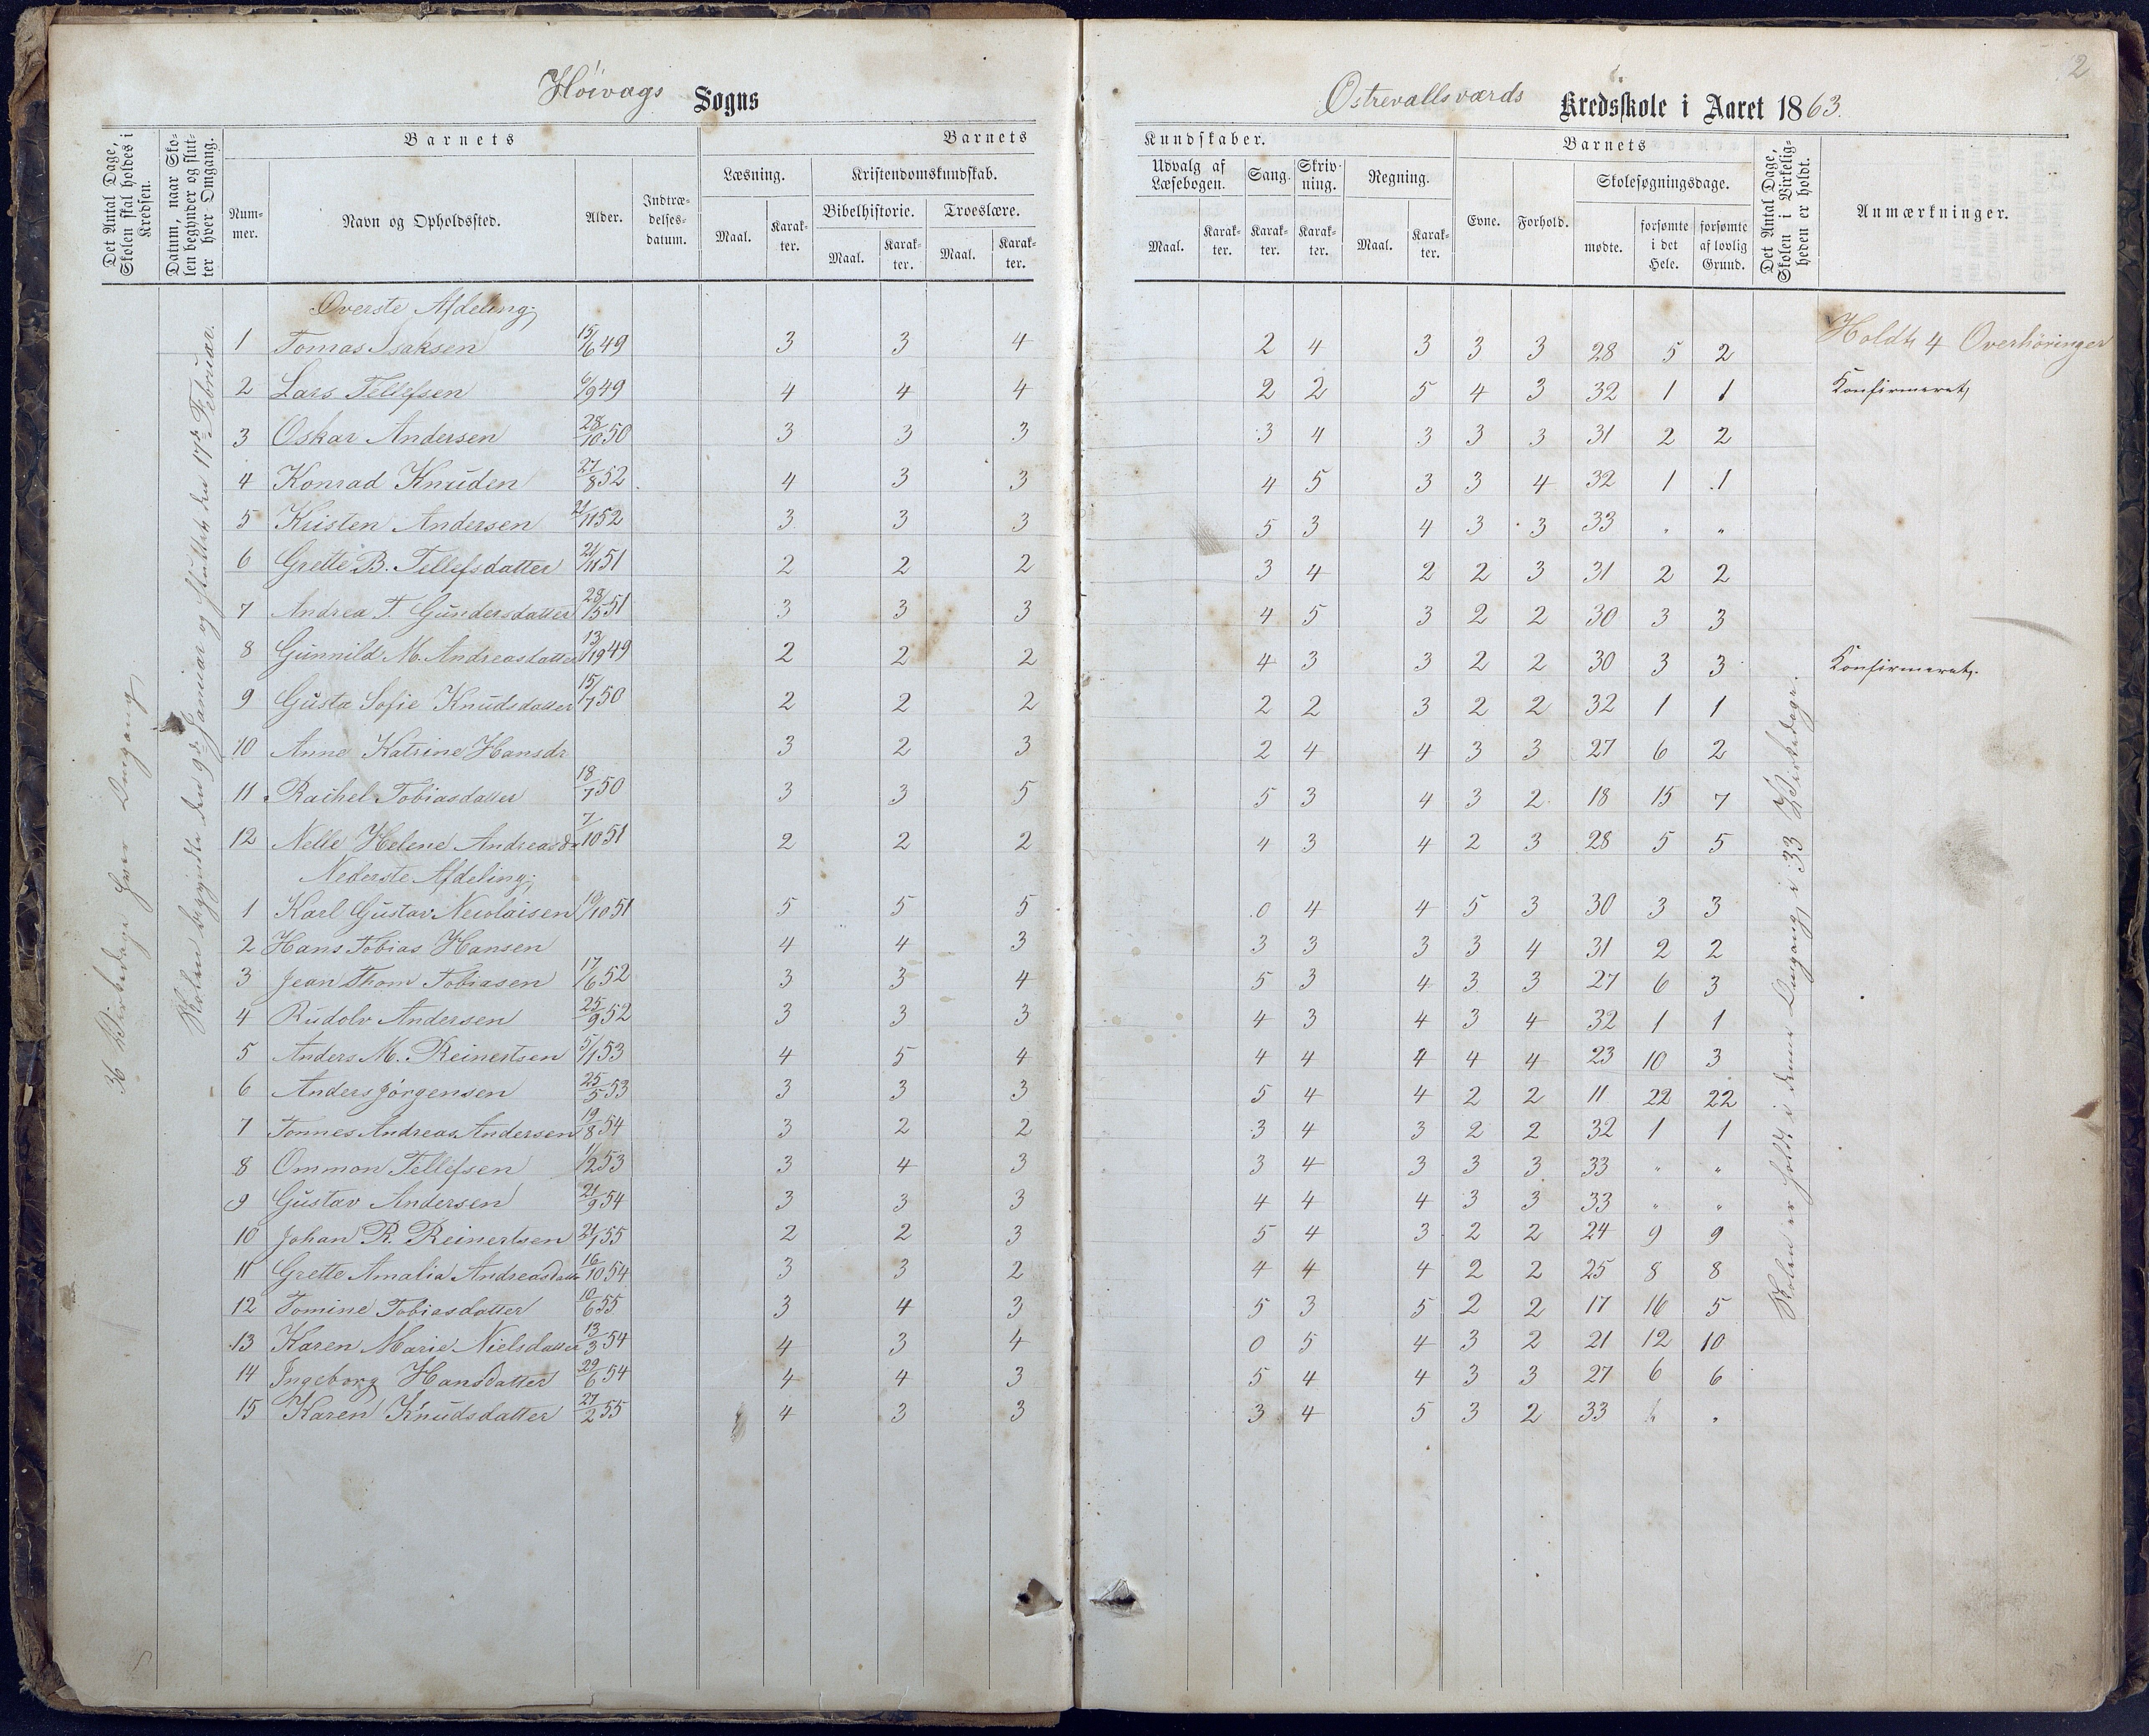 2
Høivags Sogns
Østrevallsværds Kredsskole i Aaret 1863.
Det Antal Dage, Skolen skal holdes i Kredsen.
Datum, naar Skolen begynder og slutter hver Omgang.
Barnets
Nummer.
Navn og Opholdssted.
Alder.
Indtrædelsesdatum.
Barnets
Læsning.
Maal.
Karakter.
Kristendomskundskab.
Bibelhistorie.
Maal.
Karakter.
Troeslære.
Maal.
Karakter.
Kundskaber.
Udvalg af Læsebogen.
Maal.
Karakter.
Sang.
Karakter.
Skrivning.
Karakter.
Regning.
Maal.
Karakter.
Barnets
Evne.
Forhold.
Skolesøgningsdage.
mødte.
forsømte i det Hele.
forsømte af lovlig Grund.
Det Antal Dage, Skolen i Virkeligheden er holdt.
Anmærkninger.
36 Virkedage hver Omgang
Skolen begyndte den 9de Januar og sluttede den 17de Februar.
Øverste Afdeling;
1 Tomas Isaksen 15/6 49 3 3 4 2 4 3 3 3 28 5 2 Holdt 4 Overhøringer
2 Lars Tellefsen 6/9 49 4 4 4 2 2 5 4 3 32 1 1 Konfirmeret,
3 Oskar Andersen 28/10 50 3 3 3 3 4 3 3 3 31 2 2
4 Konrad Knuden 27/8 52 4 3 3 4 5 3 3 4 32 1 1
5 Kristen Andersen 21/11 52 3 3 3 5 3 4 3 3 33 " "
6 Grette B. Tellefsdatter 21/11 51 2 2 2 3 4 2 2 3 31 2 2
7 Andrea T. Gundersdatter 28/5 51 3 3 3 4 5 3 2 2 30 3 3
8 Gunnild M. Andreasdatter 49 2 2 2 4 3 3 2 2 30 3 3 Konfirmeret.
9 Gusta Sofie Knudsdatter 15/7 50 2 2 2 2 2 3 2 2 32 1 1
10 Anne Katrine Hansdr 3 2 3 2 4 4 3 3 27 6 2
11 Rachel Tobiasdatter 18/7 50 3 3 5 5 3 4 3 2 18 15 7
12 Nelle Helene Andreasd. 7/10 51 2 2 2 4 3 4 2 3 28 5 5
Nederste Afdeling;
1 Karl Gustav Necolaisen 19/10 51 5 5 5 0 4 4 5 3 30 3 3
2 Hans Tobias Hansen 4 4 3 3 3 3 3 4 31 2 2
3 Jean Thom Tobiasen 17/6 52 3 3 4 5 3 4 3 3 27 6 3
4 Rudolv Andersen 25/9 52 3 3 3 4 3 4 3 4 32 1 1
5 Anders M. Reinertsen 5/1 53 4 5 4 4 4 4 4 4 23 10 3
6 Anders Jörgensen 25/5 53 3 3 3 5 4 4 2 2 11 22 22
7 Tønnes Andreas Andersen 19/8 54 3 2 2 3 4 3 2 2 32 1 1
8 Ommon Tellefsen 1/12 53 3 4 3 3 4 3 3 3 33 " "
9 Gustav Andersen 21/9 54 3 3 3 4 4 4 3 3 33 " "
10 Johan R. Reinertsen 21/1 55 2 2 3 5 4 3 2 2 24 9 9
11 Grette Amalia Andreasdatter 16/10 54 3 3 2 4 4 4 2 2 25 8 8
12 Tomine Tobiasdatter 10/6 55 3 4 3 5 3 5 2 2 17 16 5
13 Karen Marie Nielsdatter 13/3 54 4 3 4 0 5 4 3 2 21 12 10
14 Ingeborg Hansdatter 29/6 54 4 4 3 5 4 4 3 3 27 6 6
15 Karen Knudsdatter 27/2 55 4 3 3 3 4 5 3 2 33
Skolen er holdt i denne Omgang i 33 Virkedage.